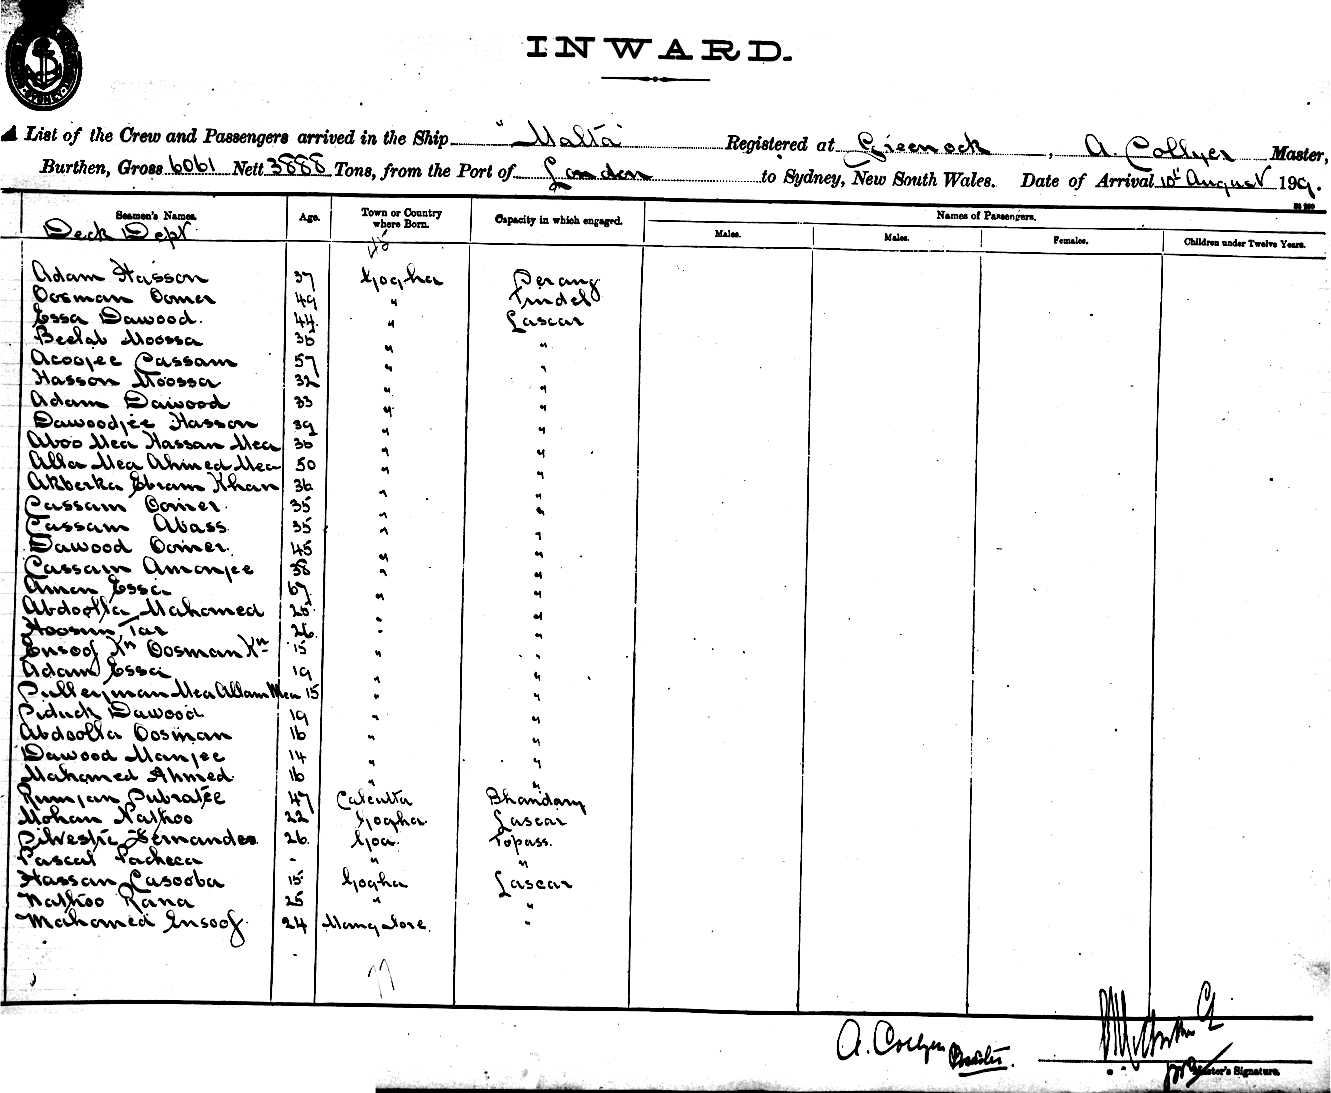 SYDNEY
INWARD.
A List of the Crew and Passengers arrived in the Ship "Malta" Registered at Greenock, A. Collyer Master,
Burthen, Gross 6061 Nett 3888 Tons, from the Port of London to Sydney, New South Wales. Date of Arrival 10th August 190
Seamen's Names. Age. Town or Country where Born. Capacity in which engaged. Names of Passengers.
Males. Males. Females. Children under Twelve Years.
Deck Dept
Adam Hasson 37 Gogha Serang
Oosman Oomer 49 " Tindel
Essa Dawood. 44 " Lascar
Moossa 36 " "
Acoojee Cassam 57 " "
Hasson Moossa 32 " "
Adam Dawood 33 " "
Dawoodjee Hasson 39 " "
Aboo Mea Hassan Mea 36 " "
Alla Mea Ahmed Mea 50 " "
Akberka Ebram Khan 36 " "
Cassam Oomer. 35 " "
Cassam Abass 35 " "
Dawood Oomer. 45 " "
Cassam Amonjee 38 " "
Amon Essa 67 " "
Abdoolla Mahomed 25 " "
Hoosun Tar 26 " "
Ensoof Kn Oosman Kn 15 " "
Adam Essa 19 " "
Sulleyman Mea Allam Mea 15 " "
Siduck Dawood 19 " "
Abdoolla Oosman 16 " "
Dawood Manjee 14 " "
Mahomed Ahmed 16 " "
Rumjan Subratee 47 Calcutta Bhandary
Mohan Nathoo 22 Gogha Lascar
Silvestre Fernandes 26 Goa Topass.
Pascal Pacheca - " "
Hassan Casooba 15 Gogha Lascar
Nathoo Rana 25 " "
Mahomed Ensoof 24 Mangalore. "
A. Collyer Master.
Master's Signature.